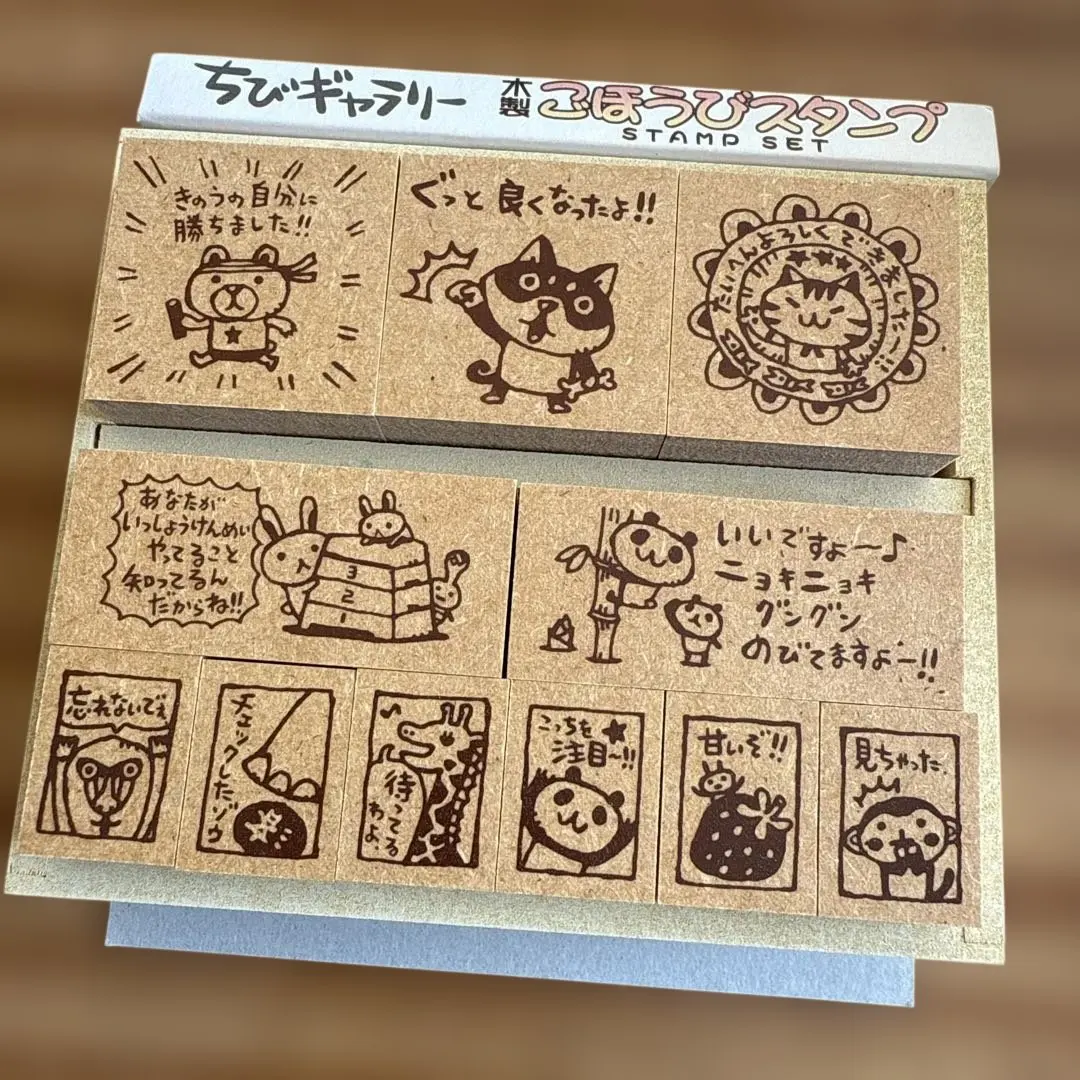 ちびギャラリー 木製 ごほうびスタンプ
STAMP SET
きのうの自分に
勝ちました!!
ぐっと良くなったよ!!
たいへんよろしくできました〜!!
あなたが
いっしょうけんめい
やってること
知ってるん
だからね!!
3
2
1
いいですよ〜♪
ニョキニョキ
グングン
のびてますよー!!
忘れないでぇ
チェックしたゾウ
待ってる
わよ、
こっちを
注目〜!!
甘いぞ!!
見ちゃった、